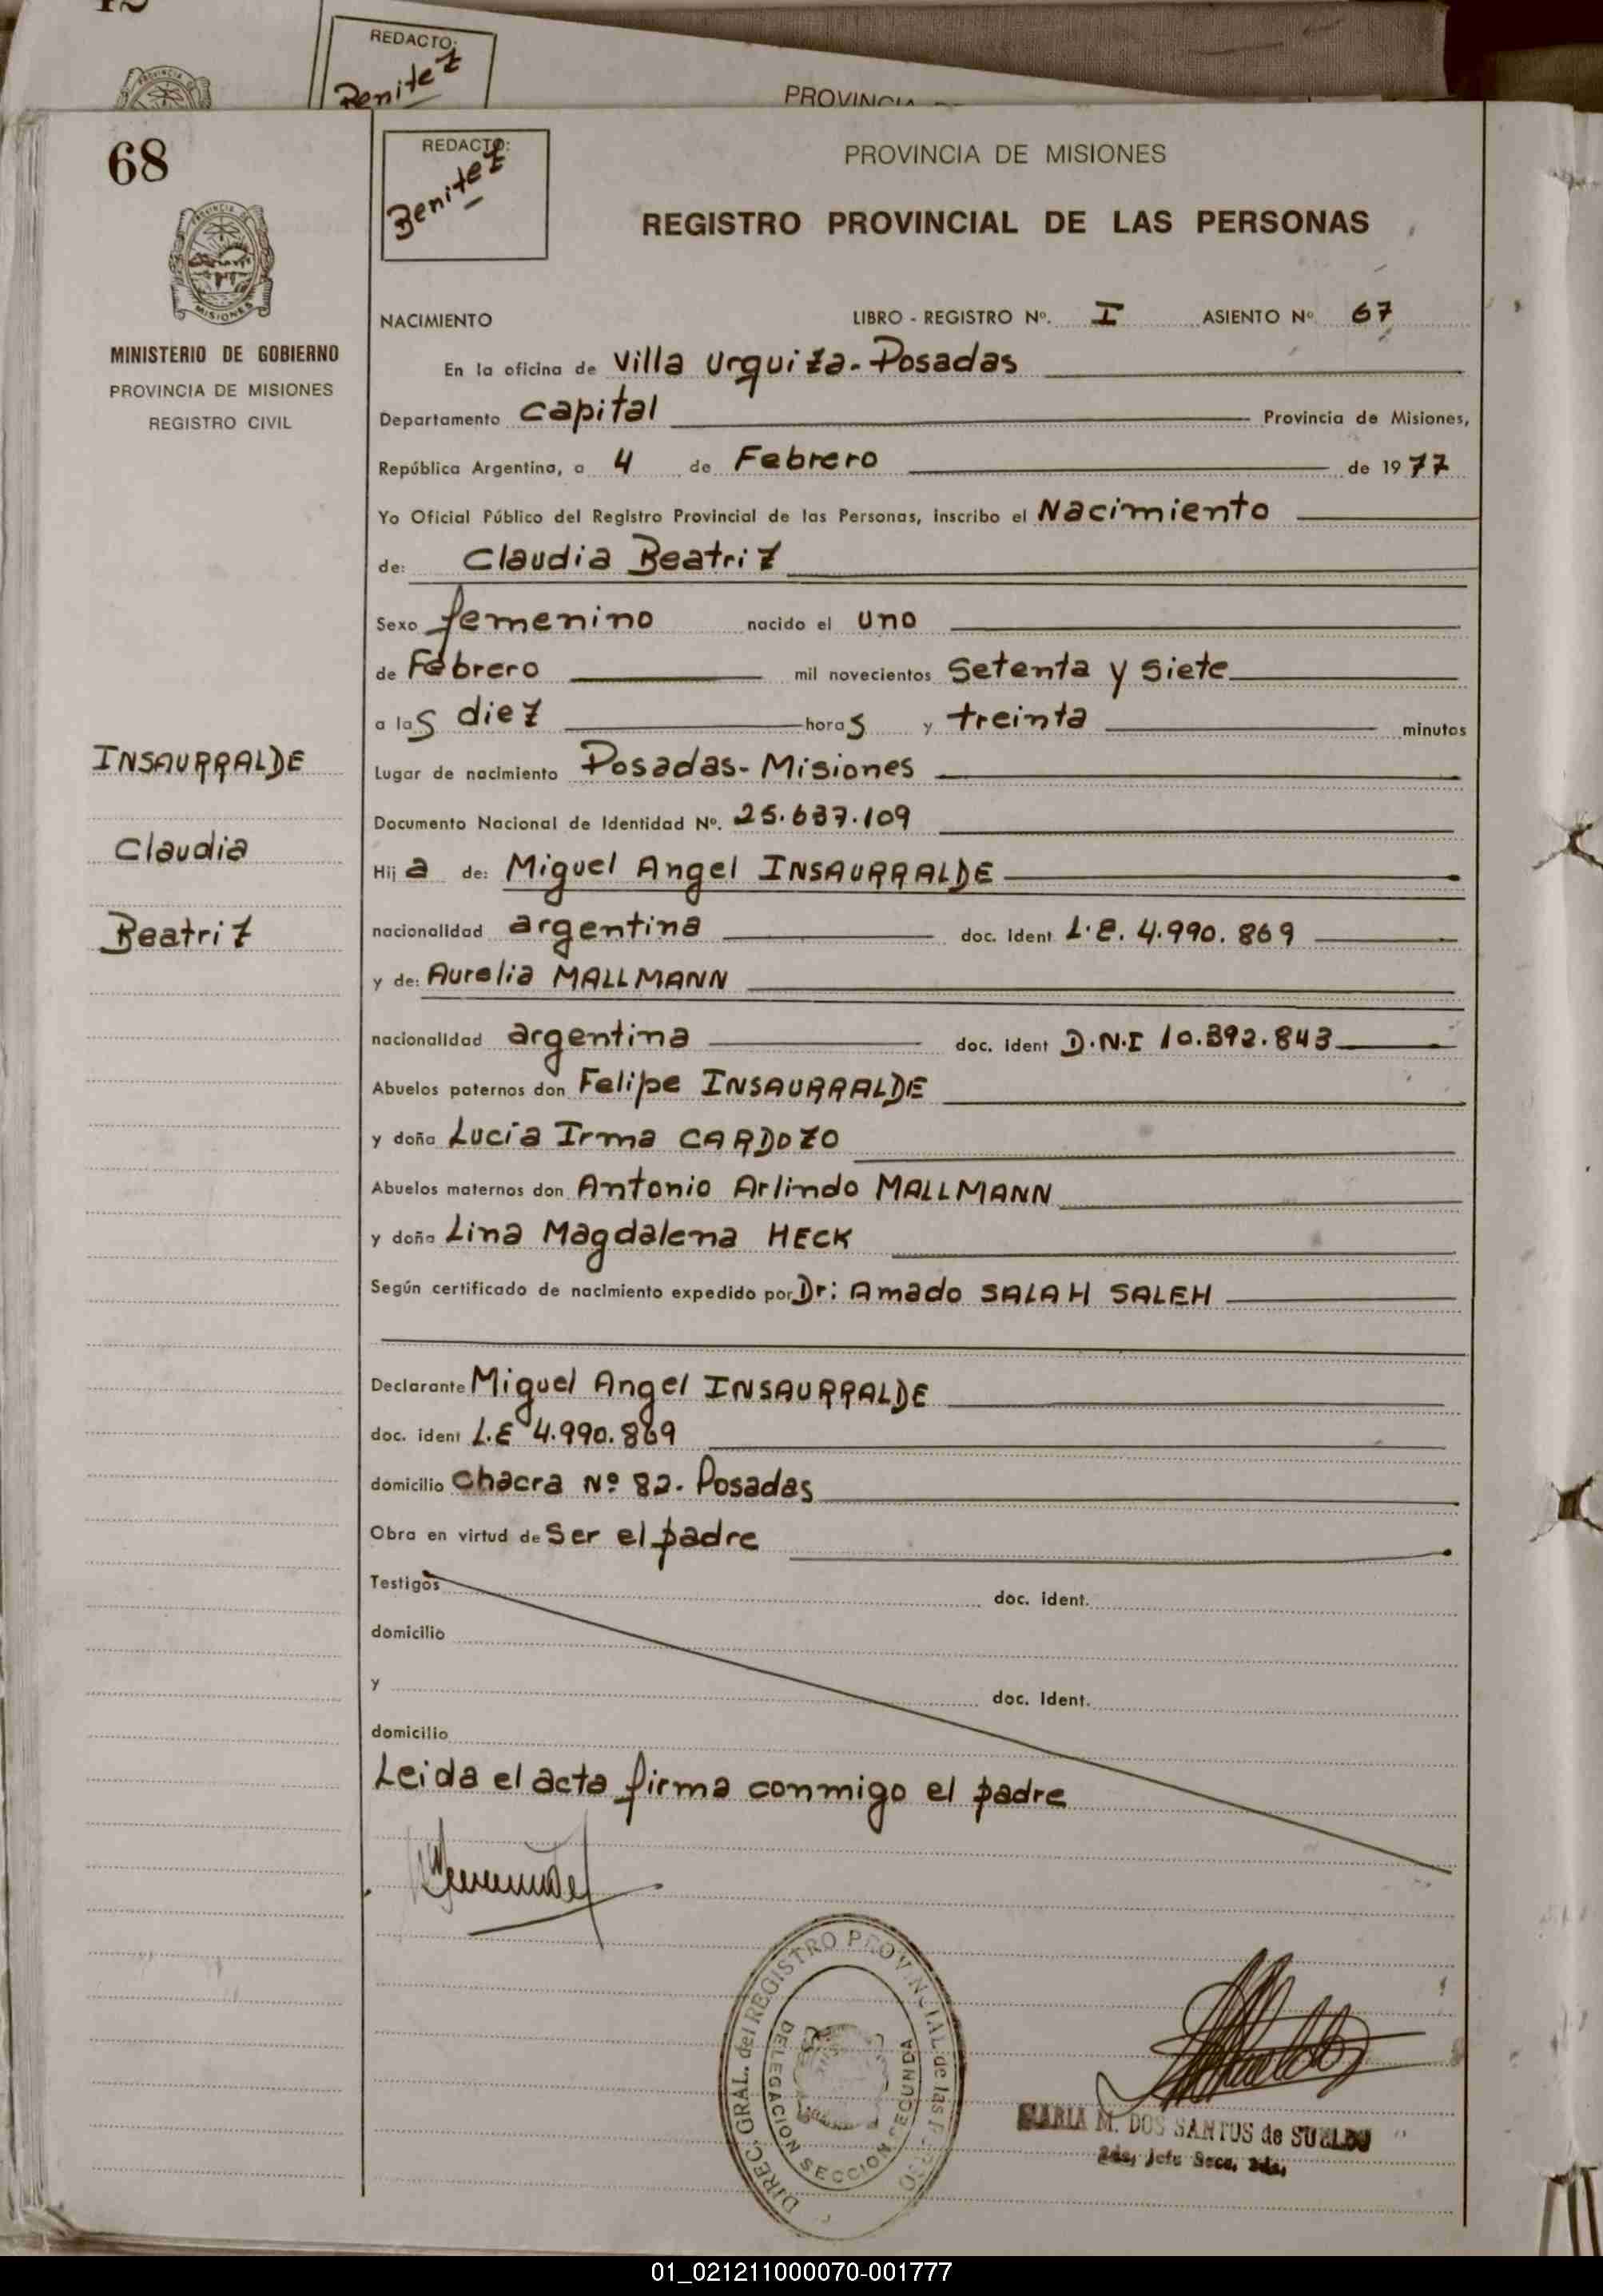 REDACTO:
Benitez
PROVINCIA DE
68
REDACTO:
Benitez
PROVINCIA DE MISIONES
REGISTRO PROVINCIAL DE LAS PERSONAS
PROVINCIA DE
MISIONES
MINISTERIO DE GOBIERNO
PROVINCIA DE MISIONES
REGISTRO CIVIL
NACIMIENTO LIBRO - REGISTRO Nº. I ASIENTO Nº 67
En la oficina de Villa Urquiza - Posadas
Departamento Capital Provincia de Misiones,
República Argentina, a 4 de Febrero de 1977
Yo Oficial Público del Registro Provincial de las Personas, inscribo el Nacimiento
de: Claudia Beatriz
Sexo femenino nacido el uno
de Febrero mil novecientos Setenta y siete
a las diez horas y treinta minutos
INSAURRALDE
Claudia
Beatriz
Lugar de nacimiento Posadas - Misiones
Documento Nacional de Identidad Nº. 25.637.109
Hija de: Miguel Angel INSAURRALDE
nacionalidad argentina doc. ident L.E. 4.990.869
y de: Aurelia MALLMANN
nacionalidad argentina doc. ident D.N.I 10.392.843
Abuelos paternos don Felipe INSAURRALDE
y doña Lucía Irma CARDOZO
Abuelos maternos don Antonio Arlindo MALLMANN
y doña Lina Magdalena HECK
Según certificado de nacimiento expedido por Dr: Amado SALAH SALEH
Declarante Miguel Angel INSAURRALDE
doc. ident L.E 4.990.869
domicilio Chacra Nº 82. Posadas
Obra en virtud de Ser el padre
Testigos doc. ident.
domicilio
y doc. ident.
domicilio
Leida el acta firma conmigo el padre
DIREC. GRAL. del REGISTRO PROVINCIAL de las
DELEGACION SECCION SEGUNDA
MARIA M. DOS SANTOS de SUELDO
2da, Jefe Secc. 2da,
01_021211000070-001777